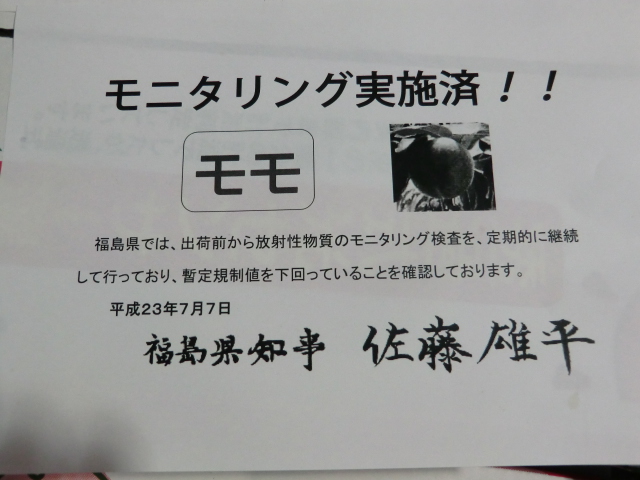 モニタリング実施済！！
モモ
福島県では、出荷前から放射性物質のモニタリング検査を、定期的に継続
して行っており、暫定規制値を下回っていることを確認しております。
平成23年7月7日
福島県知事 佐藤雄平